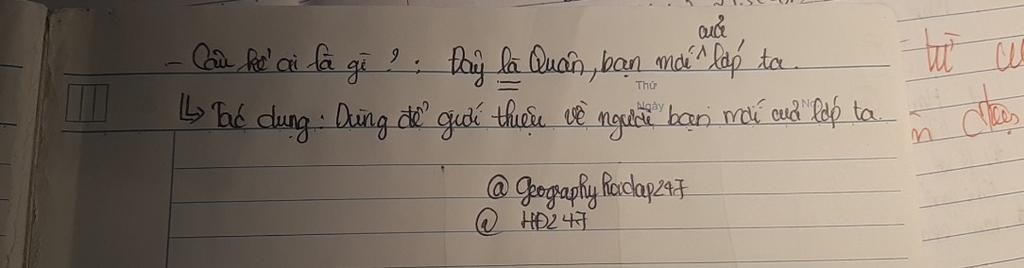 - Câu kể ai là gì? : Đây là Quân, bạn mới của lớp ta.
Thứ
Ngày
↳ Tác dụng: Dùng để giới thiệu về người bạn mới của lớp ta.
@geographyhoidap247
@ HĐ247
từ